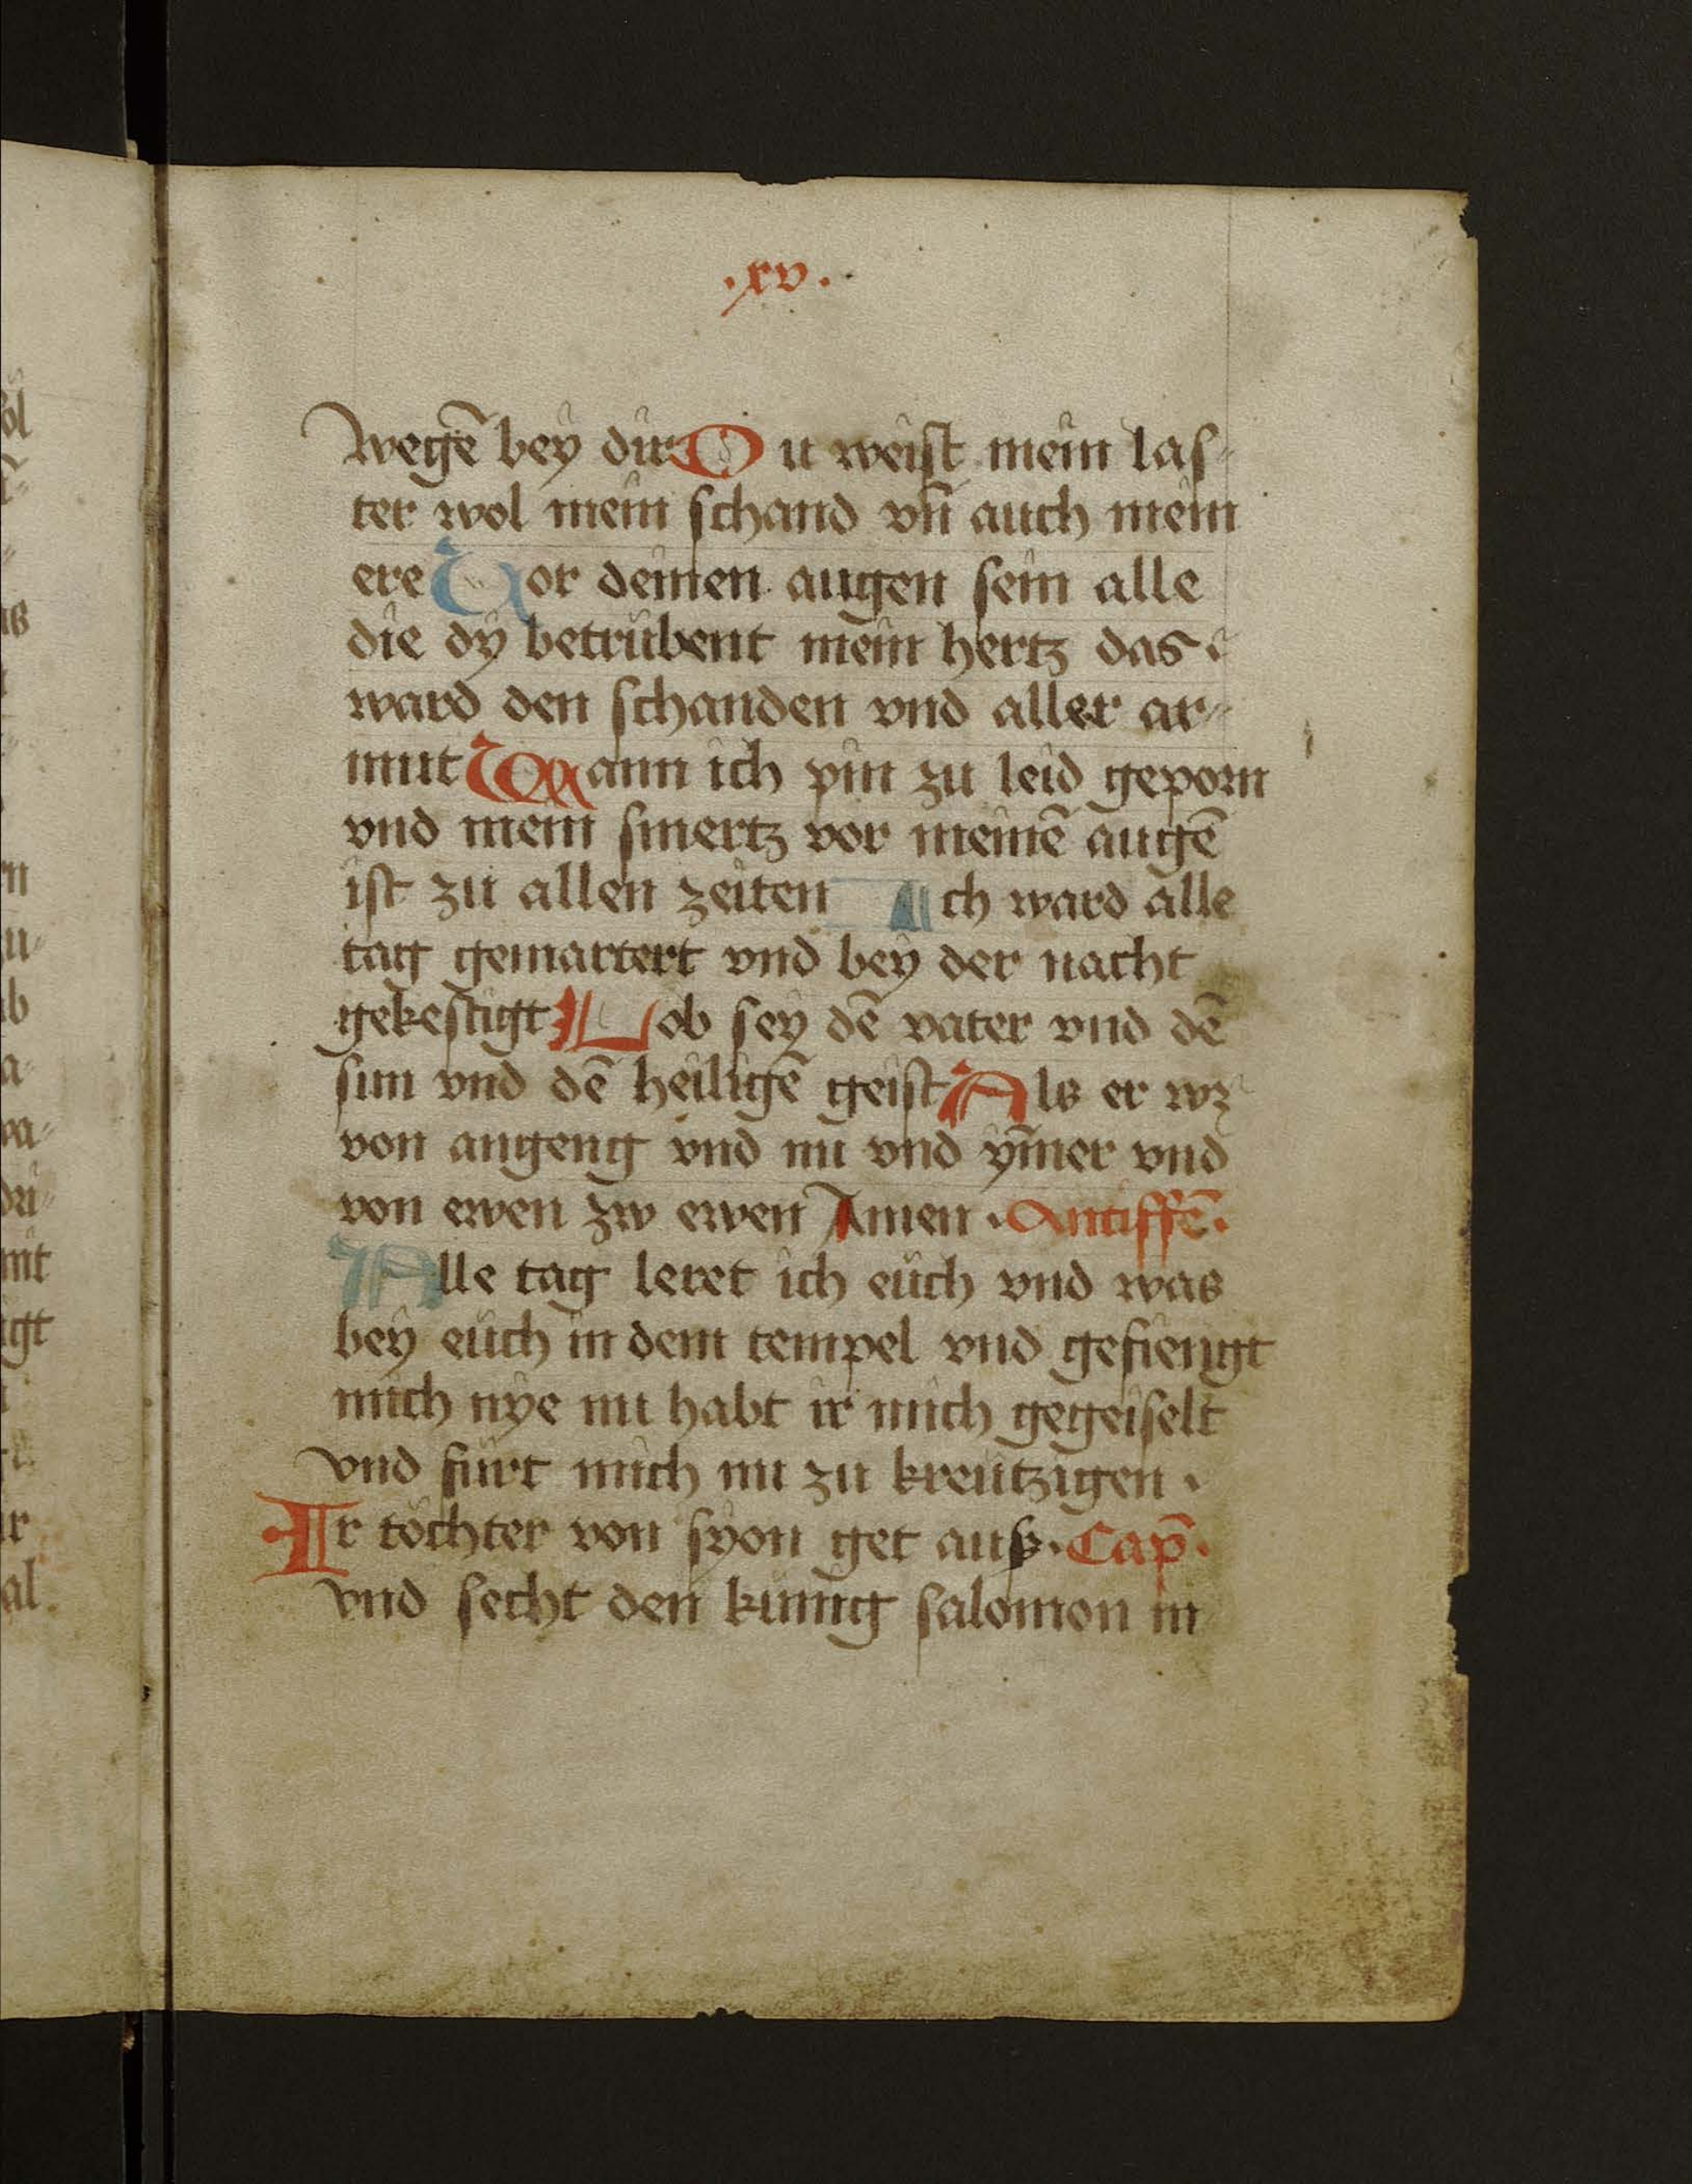 .xv.
wegē bey dir Du weist mein las-
ter wol mein schand vn̄ auch mein
ere Vor deinen augen sein alle
die dy betrübent mein hertz das
ward den schanden vnd aller ar-
mut Wann ich pin zu leid geporn
vnd mein smertz vor meinē augē
ist zu allen zeiten Ich ward alle
tag gemartert vnd bey der nacht
gekestigt Lob sey dē vater vnd dē
sun vnd dē heiligē geist Als er wz
von angeng vnd nu vnd ym̄er vnd
von ewen zw ewen Amen . Antiffē.
Alle tag leret ich eüch vnd was
bey eüch in dem tempel vnd gefiengt
mich nye nu habt ir mich gegeiselt
vnd fürt mich nu zu kreützigen .
Ir töchter von syon get auß . Cap̄.
vnd secht den künig salomon in